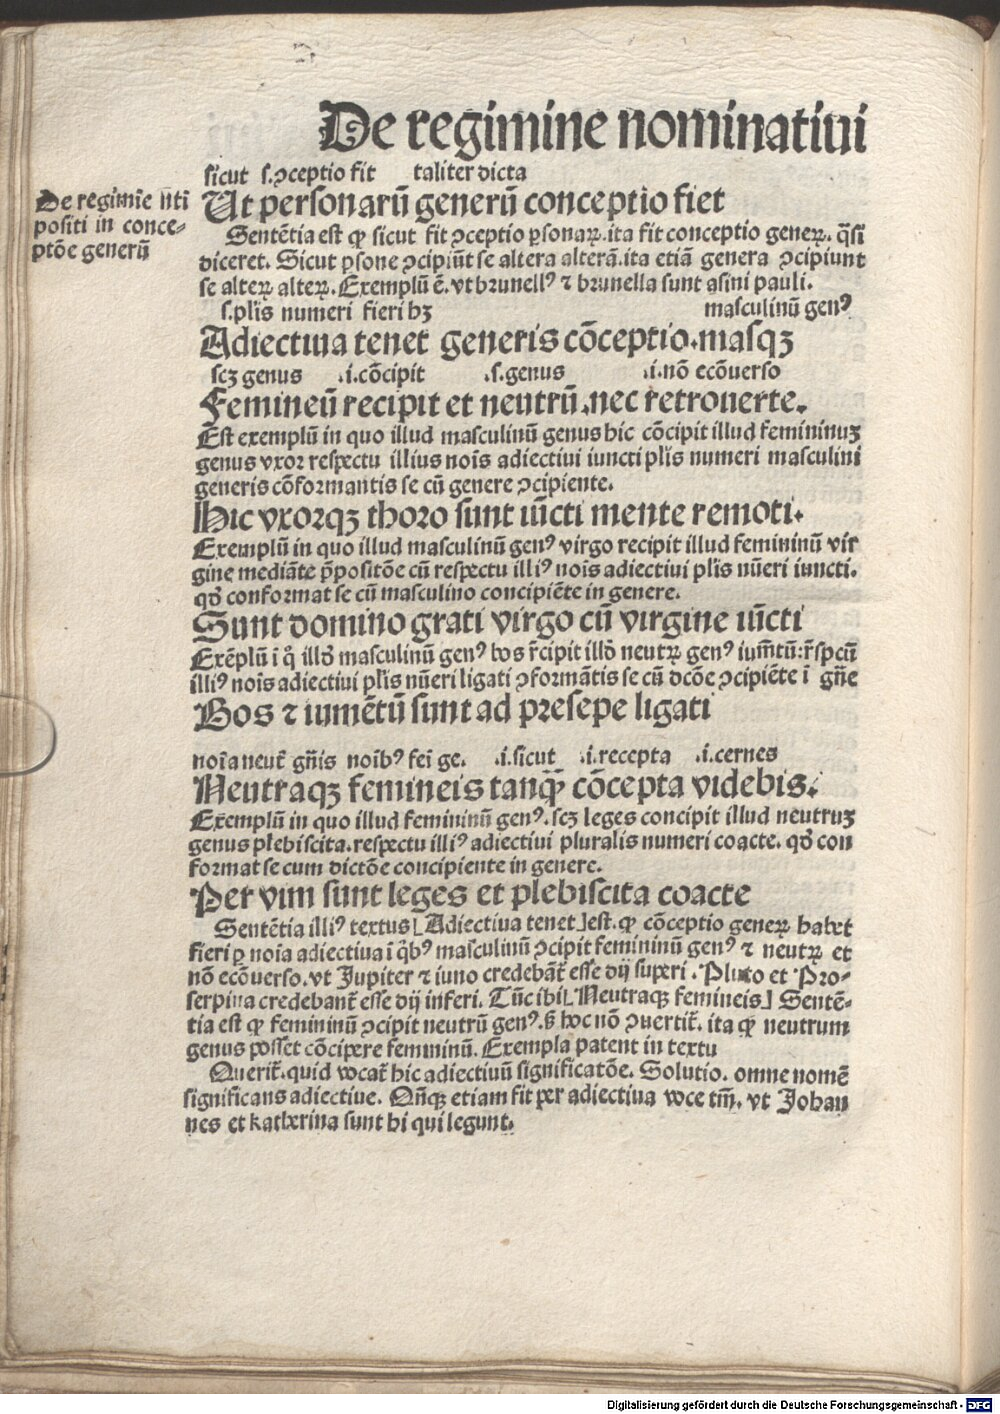 De regimine nominatiui
sicut s.ↄceptio fit taliter dicta
De regimīe n̄ti
positi in conce-
ptōe generū
Ut personarū generū conceptio fiet
Sentētia est ꝙ sicut fit ↄceptio ꝑsonaꝝ. ita fit conceptio geneꝝ. q̄si
diceret. Sicut ꝑsone ↄcipiūt se altera alterā. ita etiā genera ↄcipiunt
se alteꝝ alteꝝ. Exemplū ē. vt brunellꝰ ⁊ brunella sunt asini pauli.
s.plīs numeri fieri hꝫ masculinū genꝰ
Adiectiua tenet generis cōceptio.masqꝫ
scꝫ genus .i.cōcipit .s.genus .i.nō ecōuerso
Femineū recipit et neutrū.nec retrouerte.
Est exemplū in quo illud masculinū genus hic cōcipit illud femininuꝫ
genus vxor respectu illius noīs adiectiui iuncti plīs numeri masculini
generis cōformantis se cū genere ↄcipiente.
Hic vxorqꝫ thoro sunt iūcti mente remoti.
Exemplū in quo illud masculinū genꝰ virgo recipit illud femininū vir
gine mediāte p̄positōe cū respectu illiꝰ noīs adiectiui plīs nūeri iuncti.
qd̄ conformat se cū masculino concipiēte in genere.
Sunt domino grati virgo cū virgine iūcti
Exēplū ī q̊ illd̄ masculinū genꝰ bos r̄cipit illd̄ neutꝝ genꝰ iumētū: r̄spcū
illiꝰ noīs adiectiui plīs nūeri ligati ↄformātis se cū dc̄oe ↄcipiēte ī gn̄e
Bos ⁊ iumētū sunt ad presepe ligati
noīa neut̄ gn̄is noībꝰ feī ge. .i.sicut .i.recepta .i.cernes
Neutraqꝫ femineis tanqꝫ̄ cōcepta videbis.
Exemplū in quo illud femininū genꝰ. scꝫ leges concipit illud neutruꝫ
genus plebiscita.respectu illiꝰ adiectiui pluralis numeri coacte. qd̄ con
format se cum dictōe concipiente in genere.
Per vim sunt leges et plebiscita coacte
Sentētia illiꝰ textus [Adiectiua tenet] est. ꝙ cōceptio geneꝝ habet
fieri ꝑ noīa adiectiua ī q̄bꝰ masculinū ↄcipit femininū genꝰ ⁊ neutꝝ et
nō ecōuerso. vt Jupiter ⁊ iuno credebāt̄ esse dij superi. Pluto et Pro-
serpina credebant̄ esse dij inferi. Tūc ibi [Neutraqꝫ femineis] Sentē-
tia est ꝙ femininū ↄcipit neutrū genꝰ. ꝭ hoc nō ↄuertit̄. ita ꝙ neutrum
genus posset cōcipere femininū. Exempla patent in textu
Querit̄. quid vocat̄ hic adiectiuū significatōe. Solutio. omne nomē
significans adiectiue. Qn̄qꝫ etiam fit per adiectiua voce tm̄. vt Johan
nes et katherina sunt hi qui legunt.
Digitalisierung gefördert durch die Deutsche Forschungsgemeinschaft - DFG